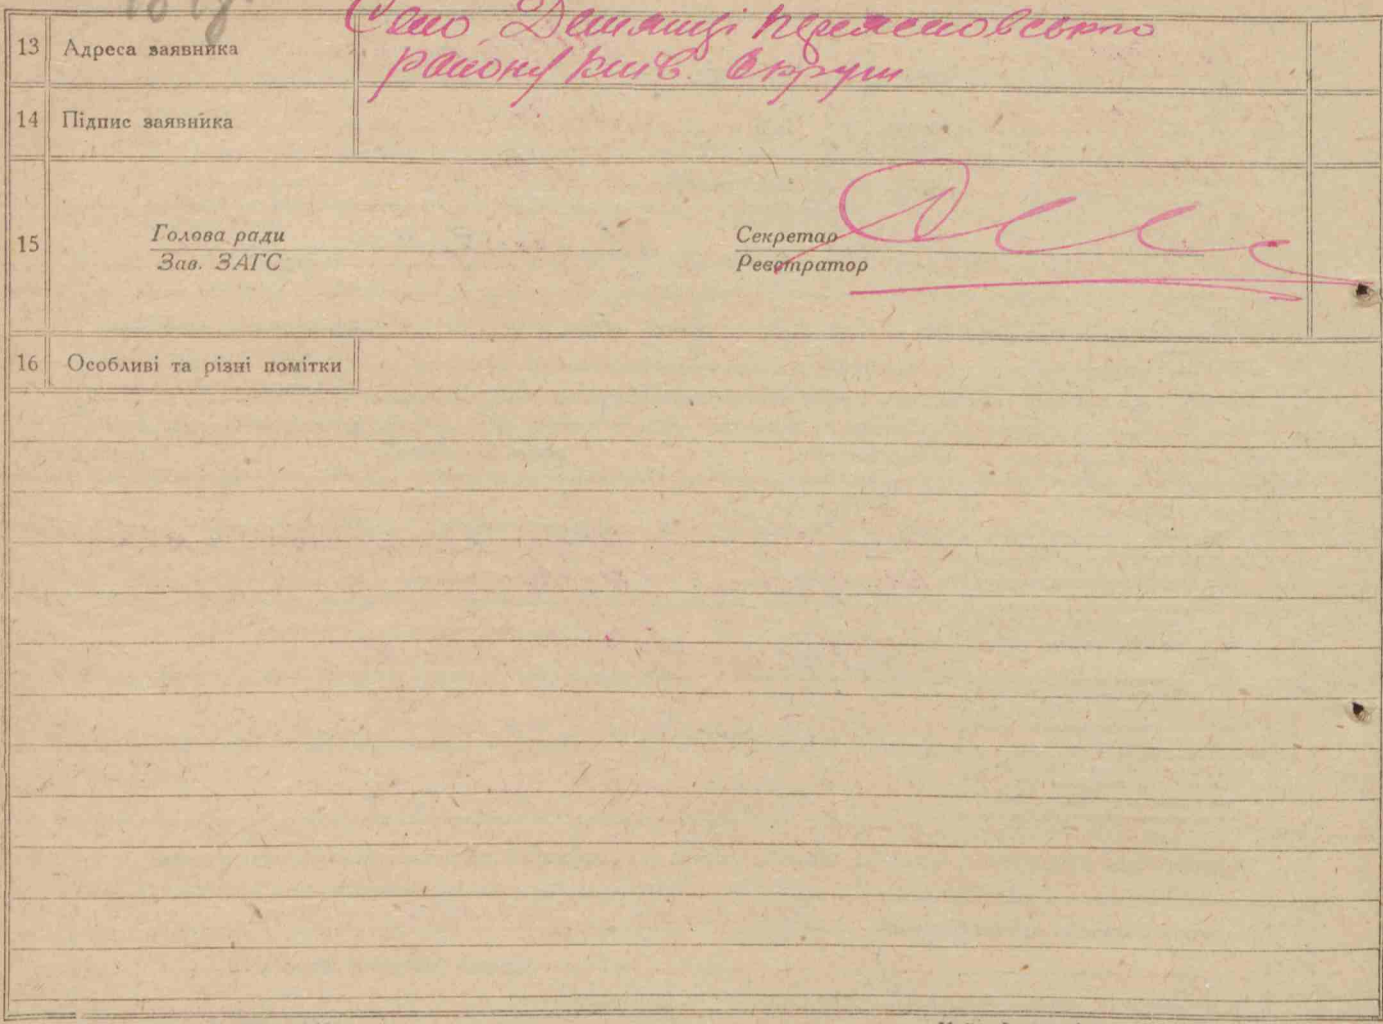 13 Адреса заявника Село Демянці Переяславського
району Київ. Округи
14 Підпис заявника
15 Голова ради Секретар
Зав. ЗАГС Реєстратор
16 Особливі та різні помітки